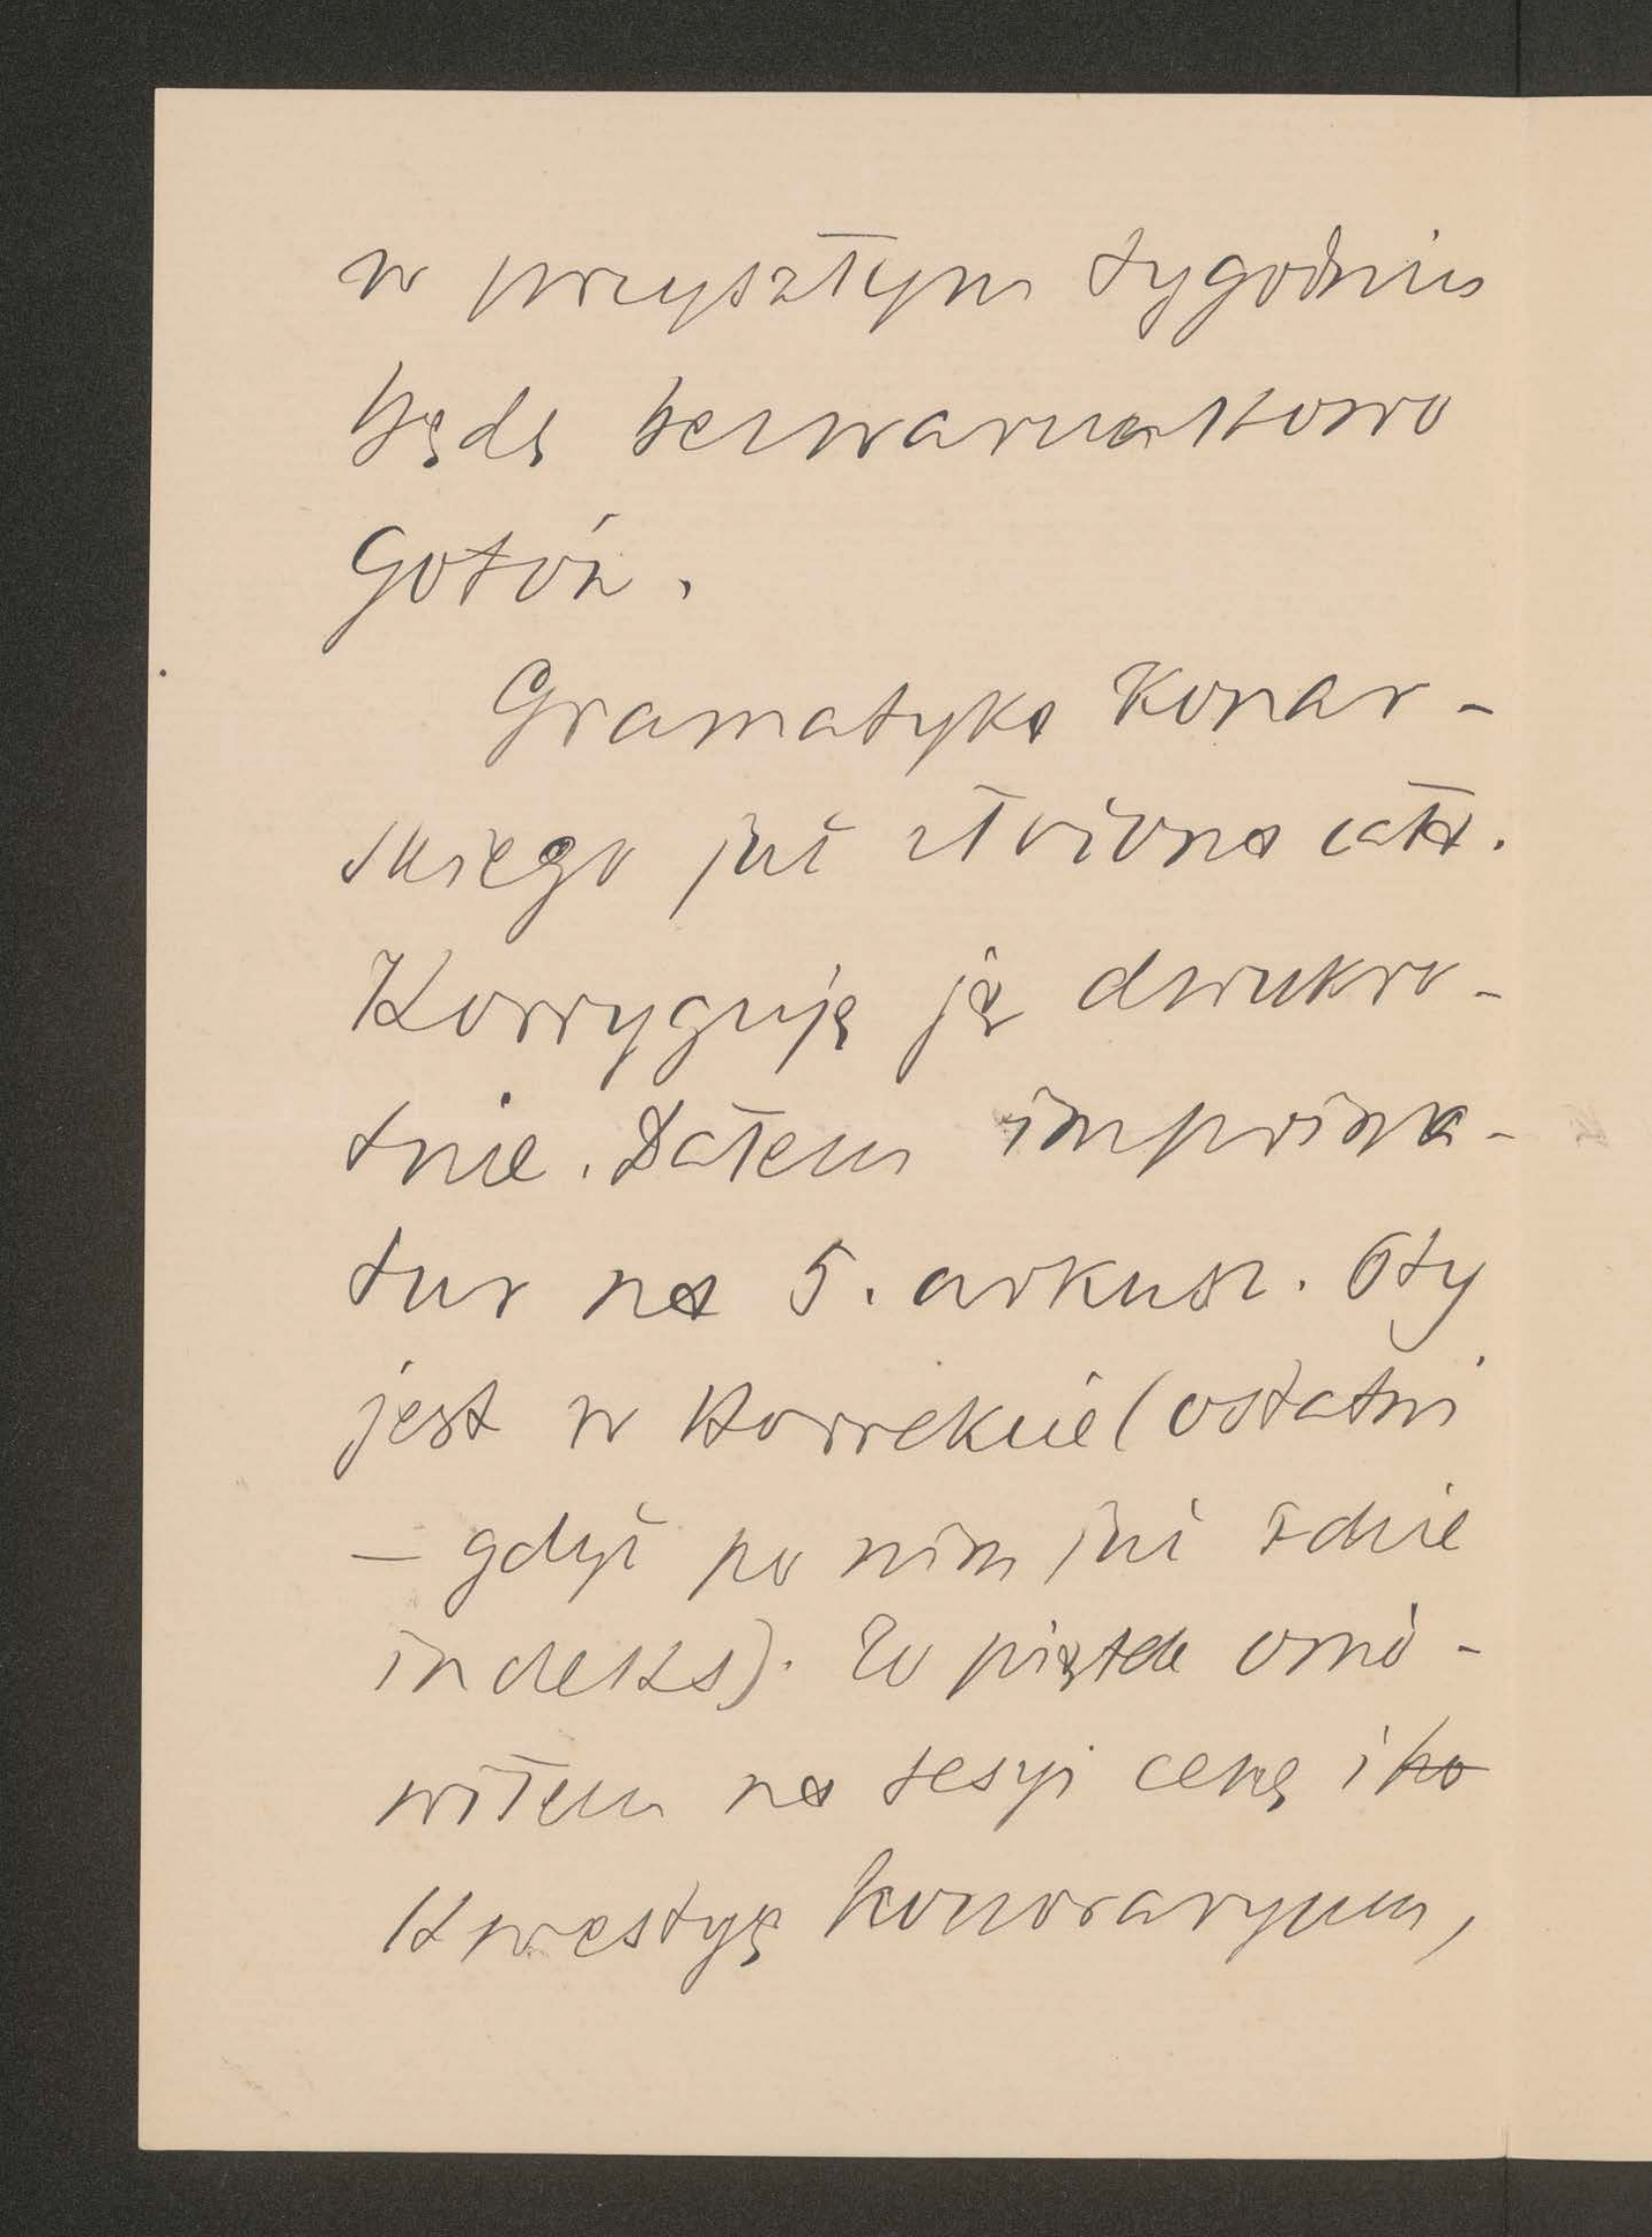 w przyszłym tygodniu
będę bezwarunkowo
gotów.
Gramatyka Konar-
skiego już złożona cała.
Korryguję ją dwukro-
tnie. Dałem imprima-
tur na 5. arkusz. 6ty
jest w korrekcie (ostatni
— gdyż po nim już idzie
indeks). W piątek omó-
wiłem na sesyi cenę i ho
kwestyę honoraryum,